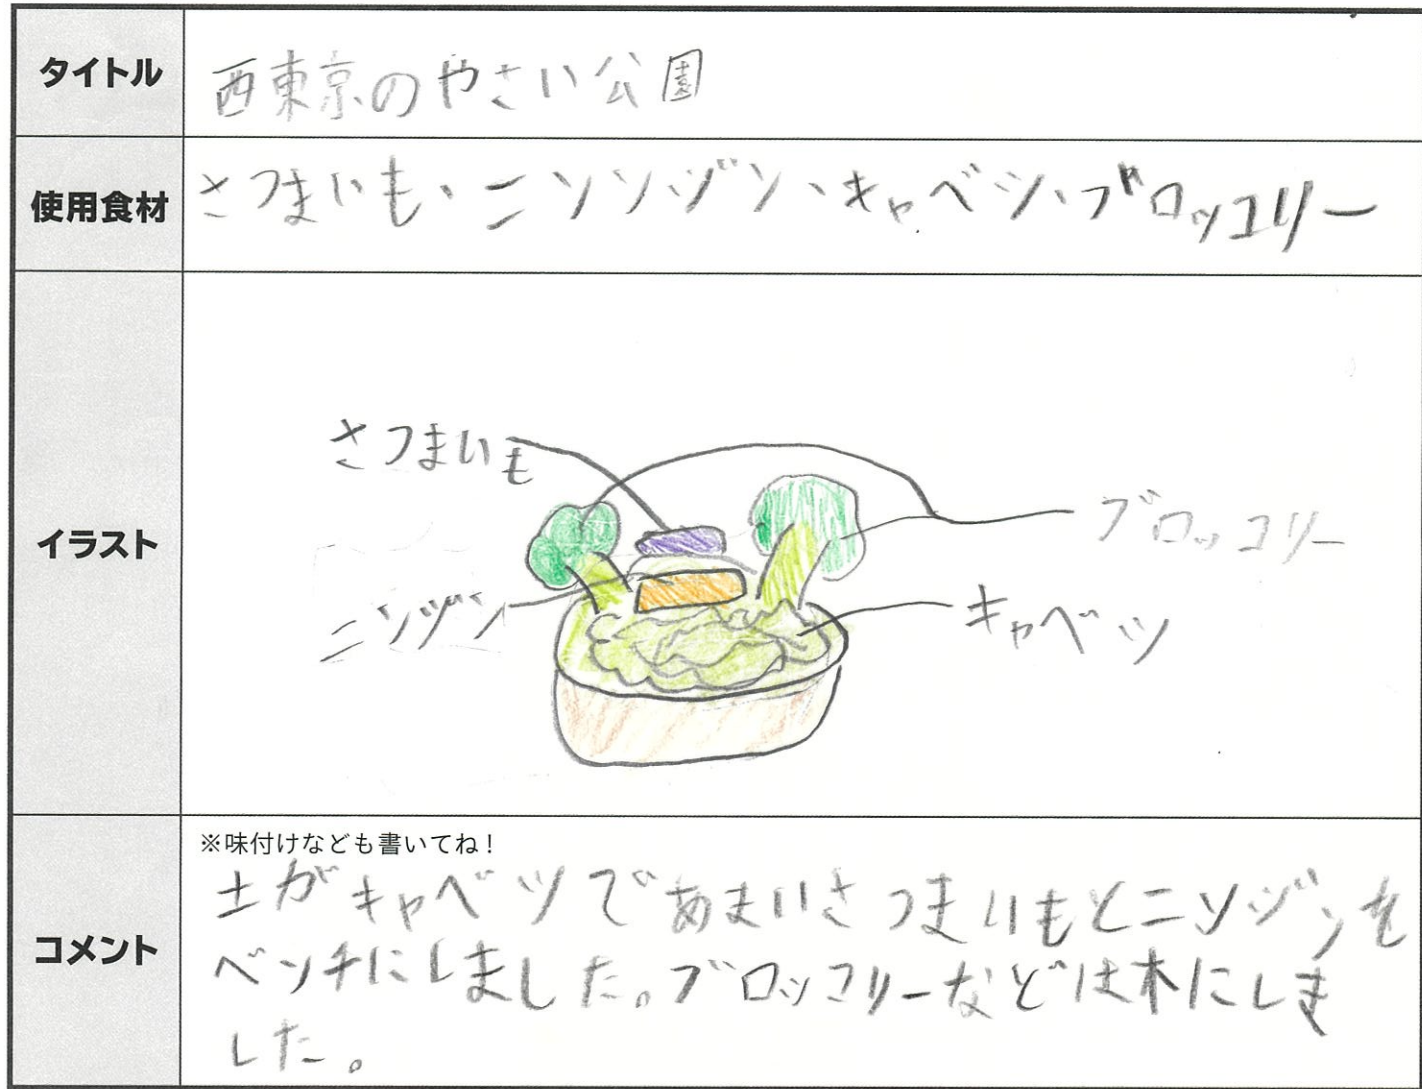 タイトル
西東京のやさい公園
使用食材
さつまいも、ニソソジン、キャベシ、ブロッコリー
イラスト
さつまいも
ブロッコリー
ニンジン
キャベツ
※味付けなども書いてね!
コメント
土がキャベツであまいさつまいもとニンジンを
ベンチにしました。ブロッコリーなどは木にしま
した。